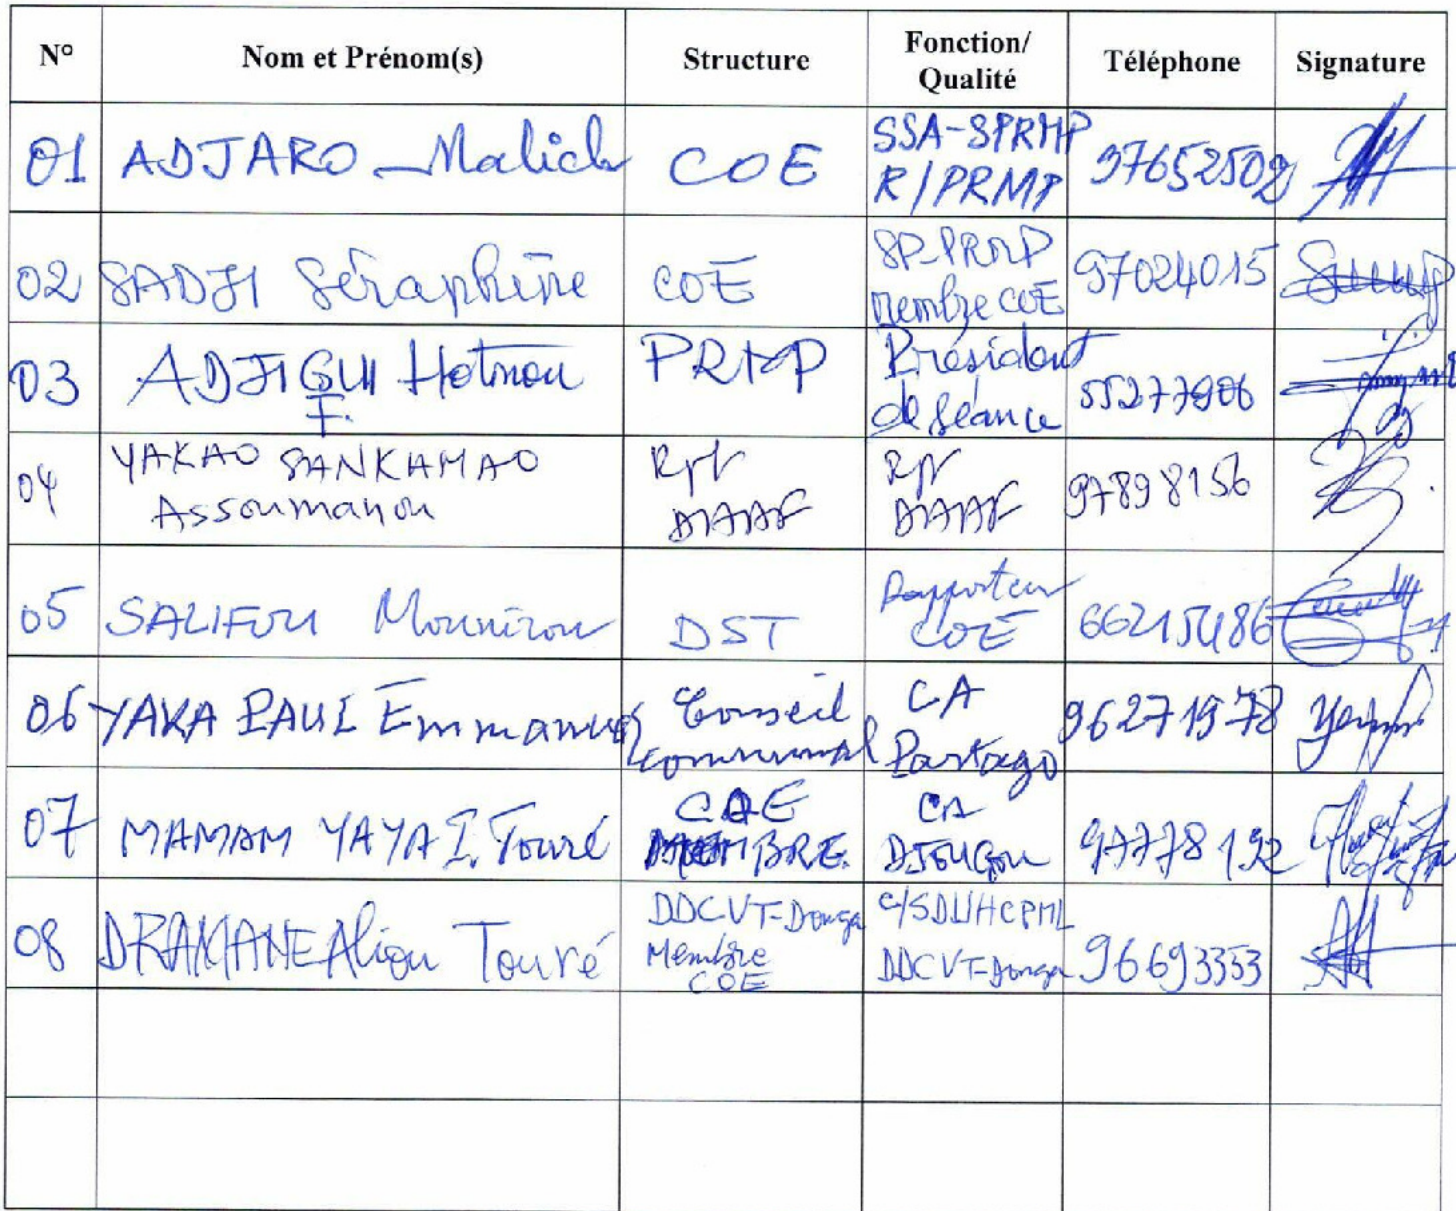 N° Nom et Prénom(s) Structure Fonction/ Qualité Téléphone Signature
01 ADJARO Malick COE SSA-SPRMP R/PRMP 97652502
02 SADJI Séraphine COE SP-PRMP membre COE 97024015
03 ADJIGUI Hotnou F. PRMP Président de séance 55277906
04 YAKAO SANKAMAO Assoumanou Rpt DAAF Rpt DAAF 97898156
05 SALIFOU Mounirou DST Rapporteur COE 66215486
06 YAKA PAUL Emmanuel Conseil communal CA Partago 96271978
07 MAMAM YAYA I. Touré COE MEMBRE CA DJOUGOU 97778192
08 DRAMANE Aliou Touré DDCVT-Donga Membre COE C/SDUHCPML DDCVT-Donga 96693353